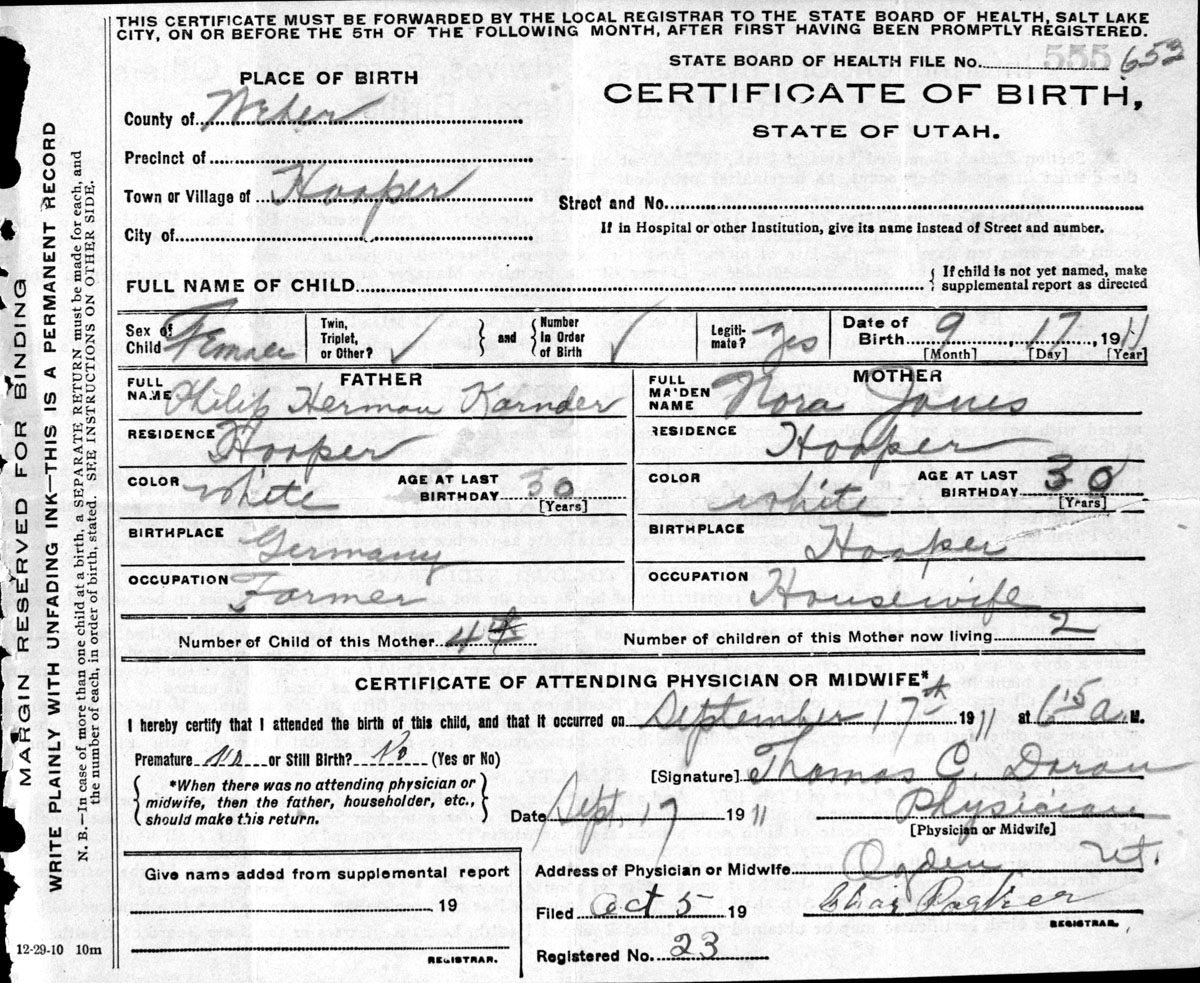 THIS CERTIFICATE MUST BE FORWARDED BY THE LOCAL REGISTRAR TO THE STATE BOARD OF HEALTH, SALT LAKE
CITY, ON OR BEFORE THE 5TH OF THE FOLLOWING MONTH, AFTER FIRST HAVING BEEN PROMPTLY REGISTERED.
MARGIN RESERVED FOR BINDING
WRITE PLAINLY WITH UNFADING INK—THIS IS A PERMANENT RECORD
N. B.—In case of more than one child at a birth, a SEPARATE RETURN must be made for each, and
the number of each, in order of birth, stated. SEE INSTRUCTIONS ON OTHER SIDE.
PLACE OF BIRTH
County of Weber
Precinct of
Town or Village of Hooper
City of
STATE BOARD OF HEALTH FILE No. 555 653
CERTIFICATE OF BIRTH,
STATE OF UTAH.
Street and No.
If in Hospital or other Institution, give its name instead of Street and number.
FULL NAME OF CHILD { If child is not yet named, make
supplemental report as directed
Sex of
Child Female
Twin,
Triplet,
or Other? ✓
} and {
Number
in Order
of Birth ✓
Legiti-
mate? Yes
Date of
Birth 9 17 1911
[Month] [Day] [Year]
FATHER
FULL
NAME Philip Herman Karnder
RESIDENCE Hooper
COLOR White AGE AT LAST
BIRTHDAY 30
[Years]
BIRTHPLACE Germany
OCCUPATION Farmer
MOTHER
FULL
MAIDEN
NAME Nora Jones
RESIDENCE Hooper
COLOR White AGE AT LAST
BIRTHDAY 30
[Years]
BIRTHPLACE Hooper
OCCUPATION Housewife
Number of Child of this Mother 4 Number of children of this Mother now living 2
CERTIFICATE OF ATTENDING PHYSICIAN OR MIDWIFE*
I hereby certify that I attended the birth of this child, and that it occurred on September 17th 1911 at 6:15 a M.
Premature No or Still Birth? No (Yes or No)
{ *When there was no attending physician or
midwife, then the father, householder, etc.,
should make this return. }
[Signature] Thomas C. Doran
Date Sept. 17 1911 Physician
[Physician or Midwife]
Give name added from supplemental report
19
REGISTRAR.
Address of Physician or Midwife Ogden Ut.
Filed Oct 5 19 Chas
REGISTRAR.
Registered No. 23
12-29-10 10m